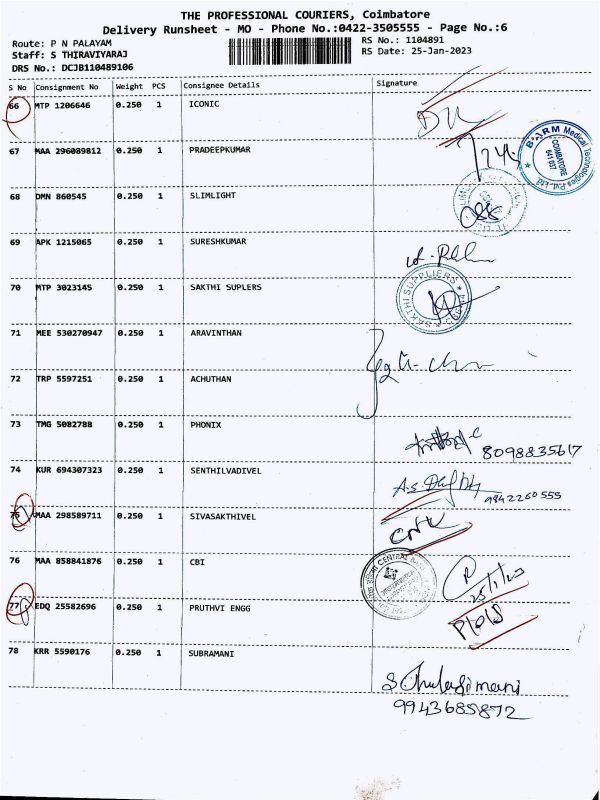 THE PROFESSIONAL COURIERS, Coimbatore
Delivery Runsheet - MO - Phone No.:0422-3505555 - Page No.:6
Route: P N PALAYAM
RS No.: 1104891
Staff: S THIRAVIYARAJ
RS Date: 25-Jan-2023
DRS No.: DCJB110489106
S No Consignment No Weight PCS Consignee Details Signature
66 MTP 1206646 0.250 1 ICONIC
67 MAA 296089812 0.250 1 PRADEEPKUMAR
B ARM Medical Technologies Pvt. Ltd
COIMBATORE
641 037
68 DMN 860545 0.250 1 SLIMLIGHT
69 APK 1215065 0.250 1 SURESHKUMAR
70 MTP 3023145 0.250 1 SAKTHI SUPLERS
SAKTHI SUPPLIERS
71 MEE 530270947 0.250 1 ARAVINTHAN
72 TRP 5597251 0.250 1 ACHUTHAN
73 TMG 5082788 0.250 1 PHONIX
8098835617
74 KUR 694307323 0.250 1 SENTHILVADIVEL
9842260555
75 MAA 298589711 0.250 1 SIVASAKTHIVEL
76 MAA 858841876 0.250 1 CBI
CENTRAL
25/1/23
77 EDQ 25582696 0.250 1 PRUTHVI ENGG
78 KRR 5590176 0.250 1 SUBRAMANI
9943685872